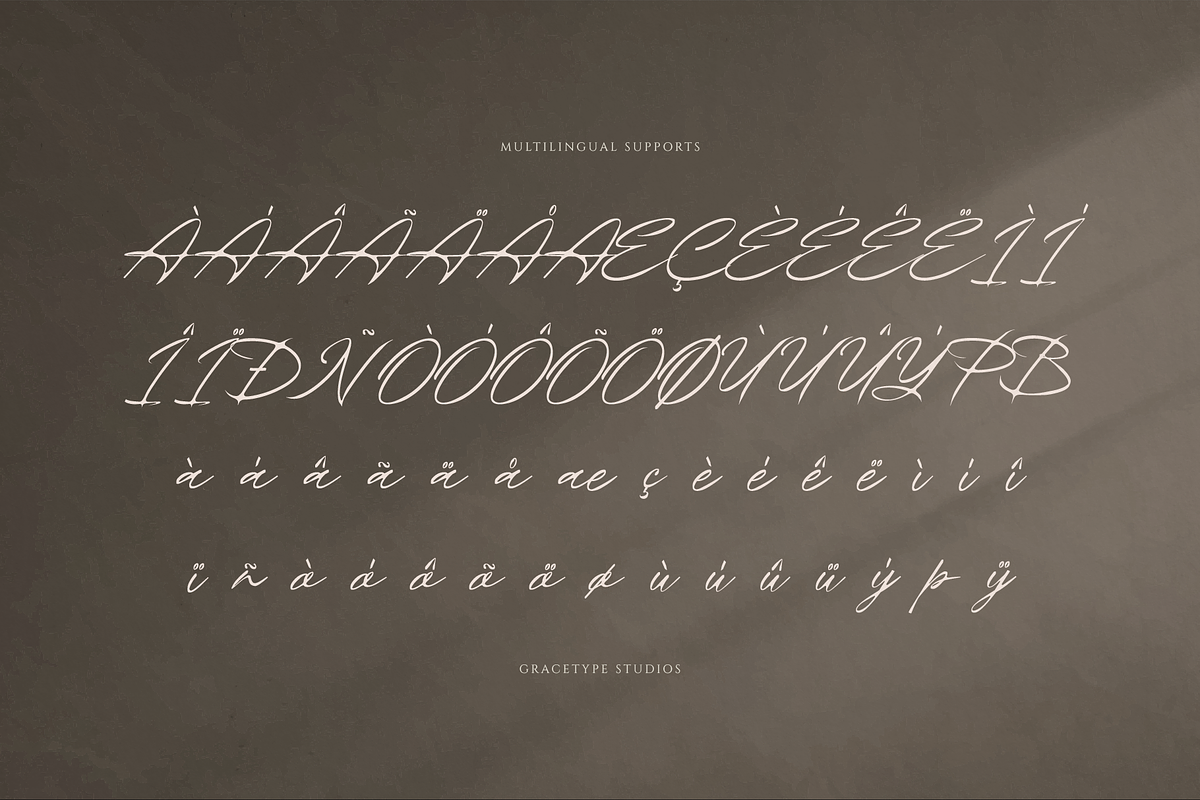 MULTILINGUAL SUPPORTS
ÀÁÂÃÄÅÆÇÈÉÊËÌÍ
ÎÏÐÑÒÓÔÕÖØÙÚÛÝÞß
à á â ã ä å æ ç è é ê ë ì í î
ï ñ ò ó ô õ ö ø ù ú û ü ý þ ÿ
GRACETYPE STUDIOS